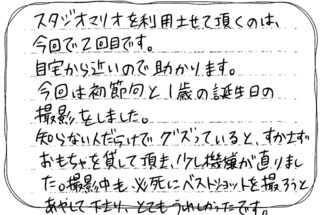 スタジオマリオを利用させて頂くのは、
今回で2回目です。
自宅から近いので助かります。
今回は初節句と1歳の誕生日の
撮影をしました。
知らない人だらけでグズっていると、すかさず
おもちゃを貸して頂き、少し機嫌が直りまし
た。撮影中も必死にベストショットを撮ろうと
あやして下さり、とてもうれしかったです。